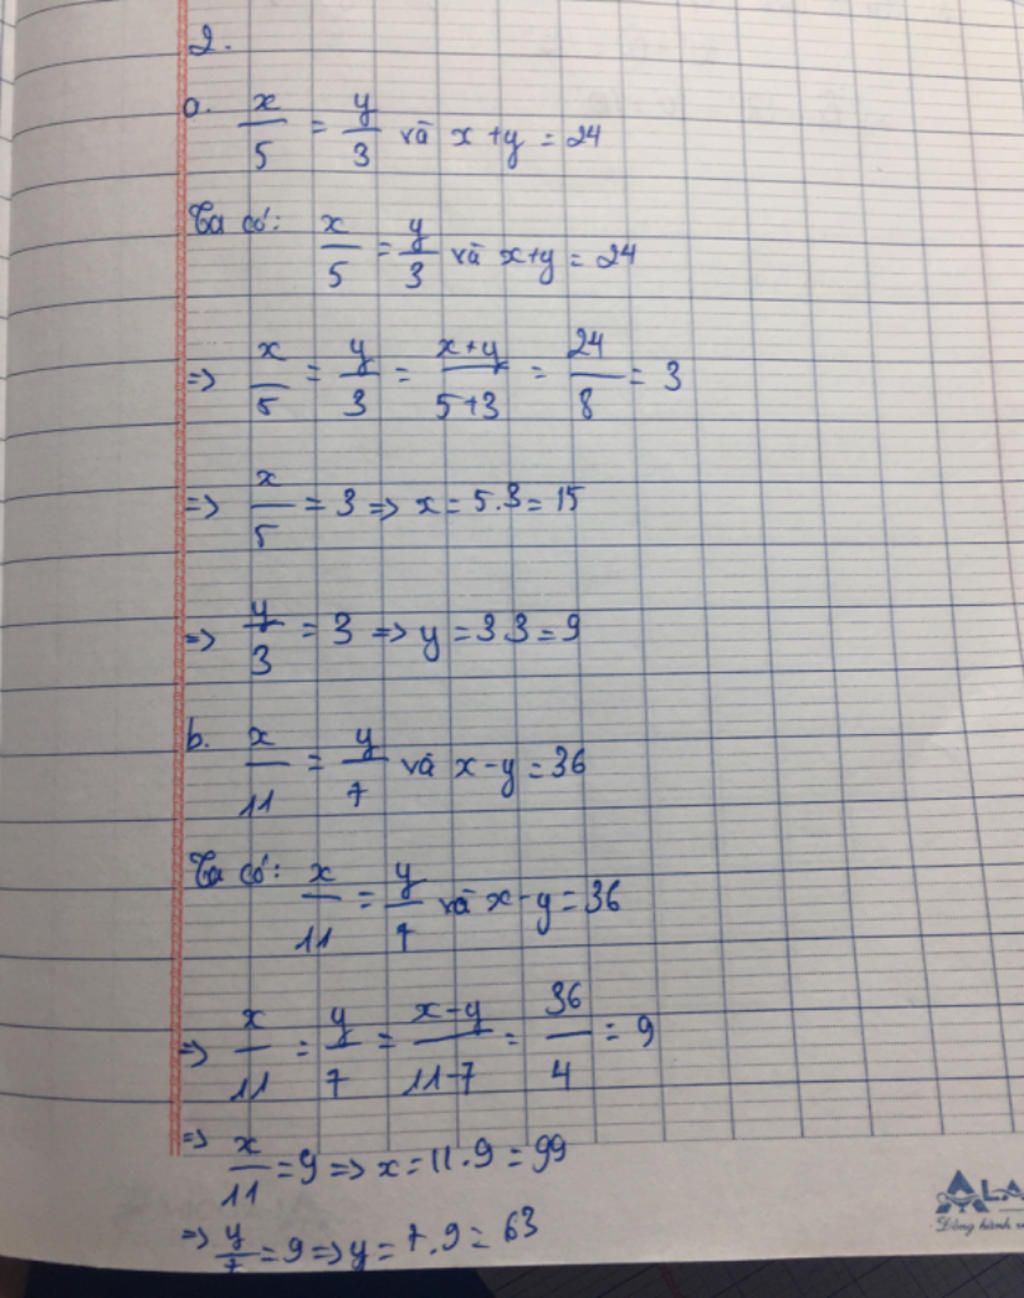 2.
a. x/5 = y/3 và x + y = 24
Ta có: x/5 = y/3 và x+y = 24
=> x/5 = y/3 = x+y/5+3 = 24/8 = 3
=> x/5 = 3 => x = 5.3 = 15
=> y/3 = 3 => y = 3.3 = 9
b. x/11 = y/7 và x-y = 36
Ta có: x/11 = y/7 và x-y = 36
=> x/11 = y/7 = x-y/11-7 = 36/4 = 9
=> x/11 = 9 => x = 11.9 = 99
=> y/7 = 9 => y = 7.9 = 63
ALA
Đồng hành